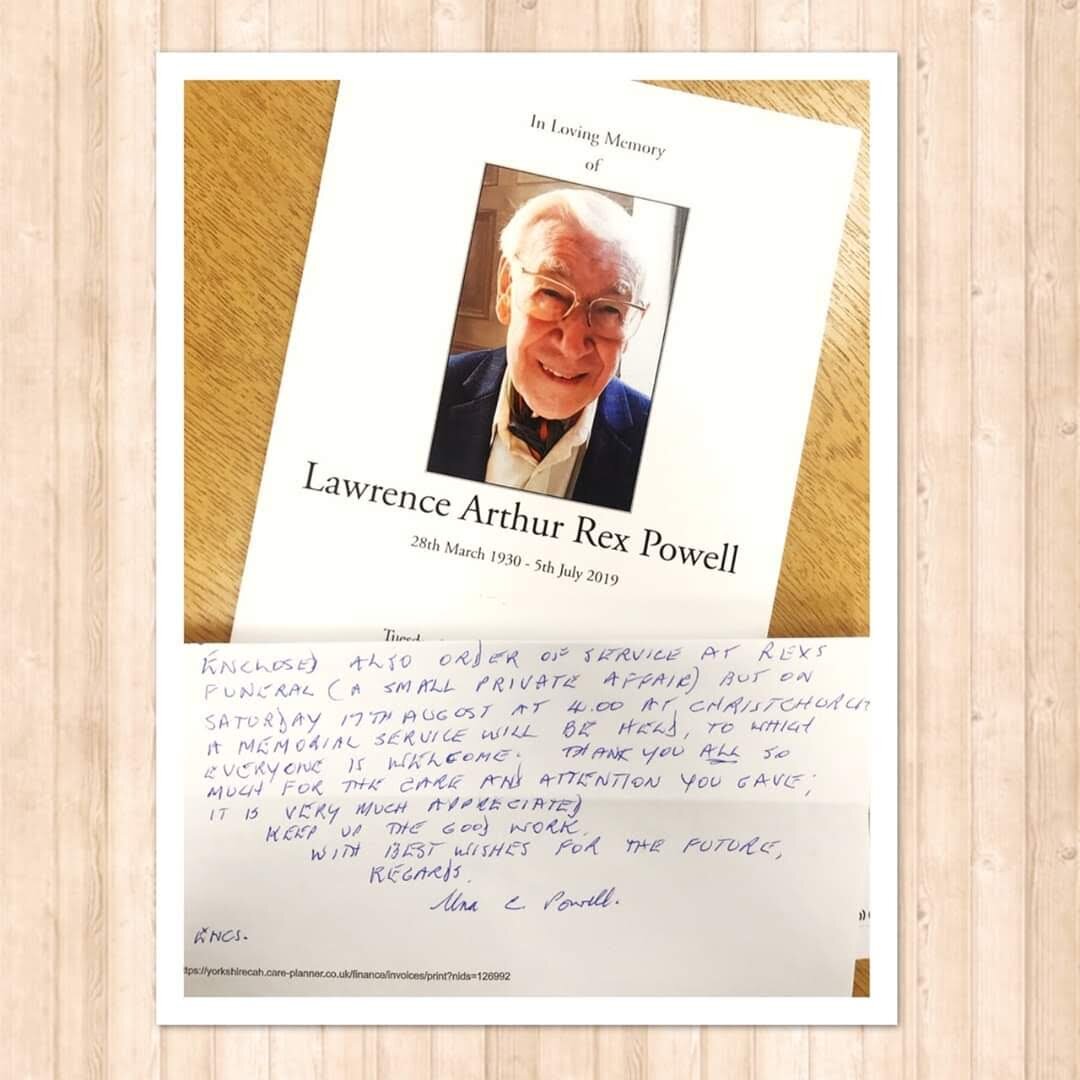 In Loving Memory
of
Lawrence Arthur Rex Powell
28th March 1930 - 5th July 2019
ENCLOSED ALSO ORDER OF SERVICE AT REXS
FUNERAL (A SMALL PRIVATE AFFAIR) BUT ON
SATURDAY 17TH AUGUST AT 4.00 AT CHRISTCHURCH
A MEMORIAL SERVICE WILL BE HELD, TO WHICH
EVERYONE IS WELCOME. THANK YOU ALL SO
MUCH FOR THE CARE AND ATTENTION YOU GAVE;
IT IS VERY MUCH APPRECIATED
KEEP UP THE GOOD WORK.
WITH BEST WISHES FOR THE FUTURE,
REGARDS.
Una C Powell.
ENCS.
tps://yorkshirecah.care-planner.co.uk/finance/invoices/print?nids=126992